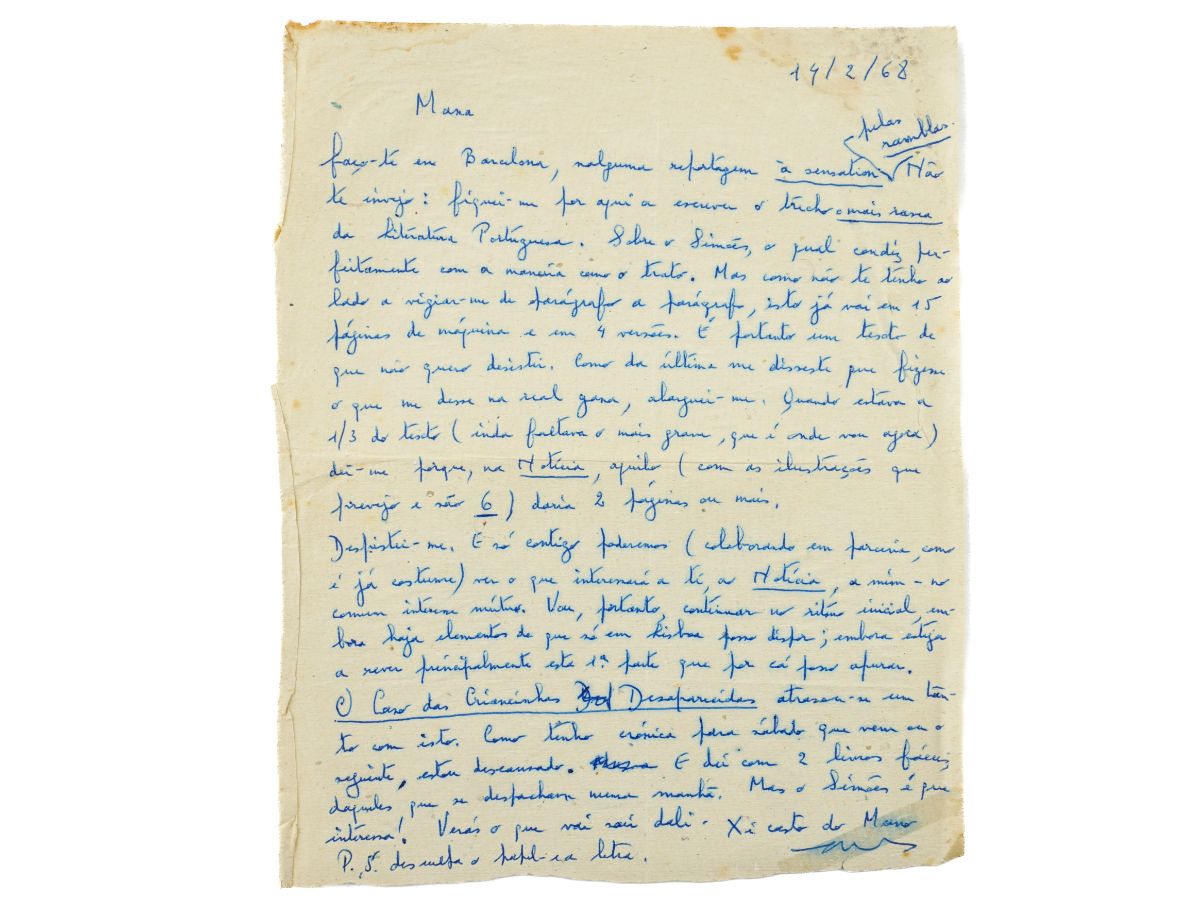 14/2/68
Mana
pelas
ramblas.
faço-te em Barcelona, nalguma reportagem à sensation Não
te invejo: fiquei-me por aqui a escrever o trecho o mais rasca
da Literatura Portuguesa. Sobre o Simões, o qual condiz per-
feitamente com a maneira como o trato. Mas como não te tenho ao
lado a vigiar-me de parágrafo a parágrafo, isto já vai em 15
páginas de máquina e em 4 versões. É portanto um texto de
que não quero desistir. Como da última me disseste que fizesse
o que me desse na real gana, alarguei-me. Quando estava a
1/3 do texto (inda faltava o mais grave, que é onde vou agora)
dei-me porque, na Notícia, aquilo (com as ilustrações que
prevejo e são 6) daria 2 páginas ou mais.
Despistei-me. E só contigo poderemos (colaborando em parceria, como
é já costume) ver o que interessará a ti, ao Notícia, a mim - no
comum interesse mútuo. Vou, portanto, continuar no ritmo inicial, em-
bora haja elementos de que só em Lisboa posso dispor; embora esteja
a rever principalmente esta 1ª parte que por cá posso apurar.
O Caso das Criancinhas Desaparecidas atrasou-se um tan-
to com isto. Como tenho crónica para sábado que vem ou o
seguinte, estou descansado. E dei com 2 livros fáceis,
daqueles, que se despacham numa manhã. Mas o Simões é que
interessa! Verás o que vai sair dali - Xi casto do Mano
P.S. desculpa o papel e a letra.